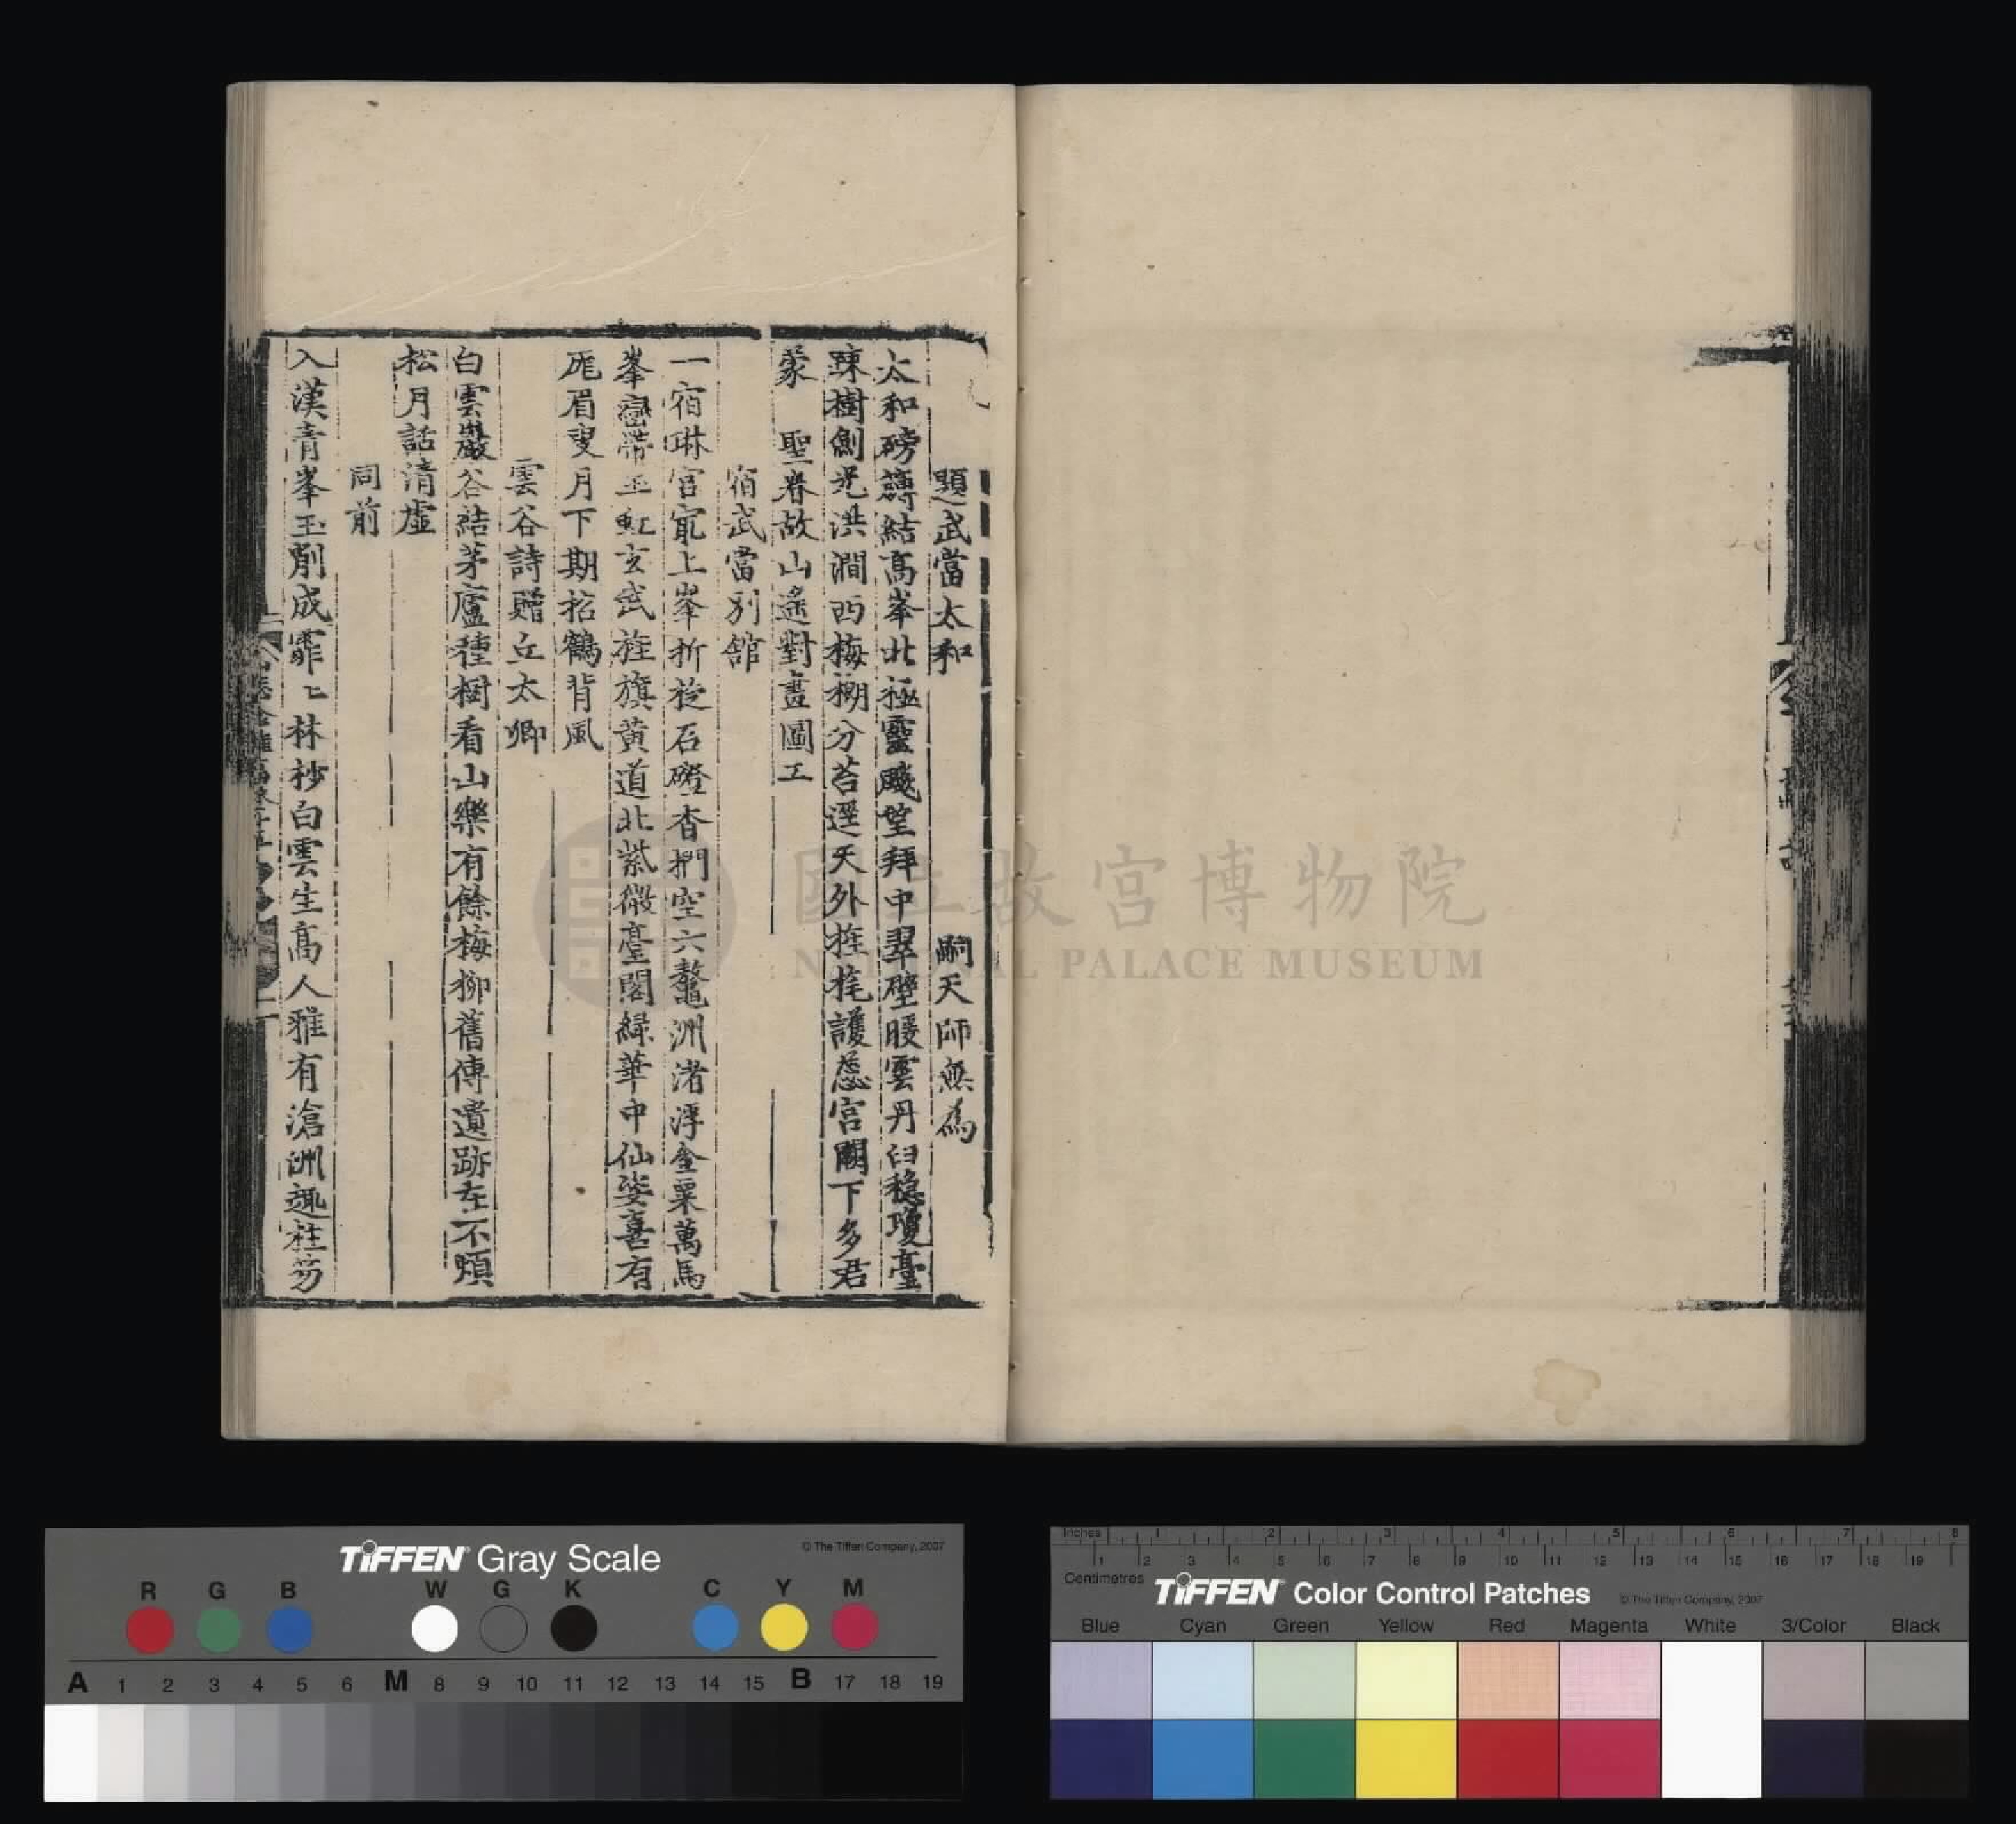 題武當太和 嗣天師無為
太和磅礴結高峯北極靈颷望拜中翠壁暖雲丹臼穩瓊臺
踈樹劍光洪澗西梅栁分苔選天外旌旄護蘂宮闕下多君
蒙 聖眷故山遙對畫圖工
宿武當別舘
一宿琳宮寬上峯折旋石磴杳捫空六鼇洲渚浮金粟萬馬
峯巒帶玉虹玄武旌旗黃道北紫微臺閣綠華中仙姿喜有
厖眉叟月下期招鶴背風
雲谷詩贈丘太卿
白雲巖谷結茅廬種樹看山樂有餘梅栁舊傳遺跡在不煩
松月話清虛
同前
入漢青峯玉削成霏〻林杪白雲生髙人雅有滄洲趣拄笏
國立故宮博物院
NATIONAL PALACE MUSEUM
TIFFEN Gray Scale
© The Tiffen Company, 2007
R G B W G K C Y M
A 1 2 3 4 5 6 M 8 9 10 11 12 13 14 15 B 17 18 19
Inches 1 2 3 4 5 6 7 8
1 2 3 4 5 6 7 8 9 10 11 12 13 14 15 16 17 18 19
Centimetres
TIFFEN Color Control Patches
© The Tiffen Company, 2007
Blue Cyan Green Yellow Red Magenta White 3/Color Black